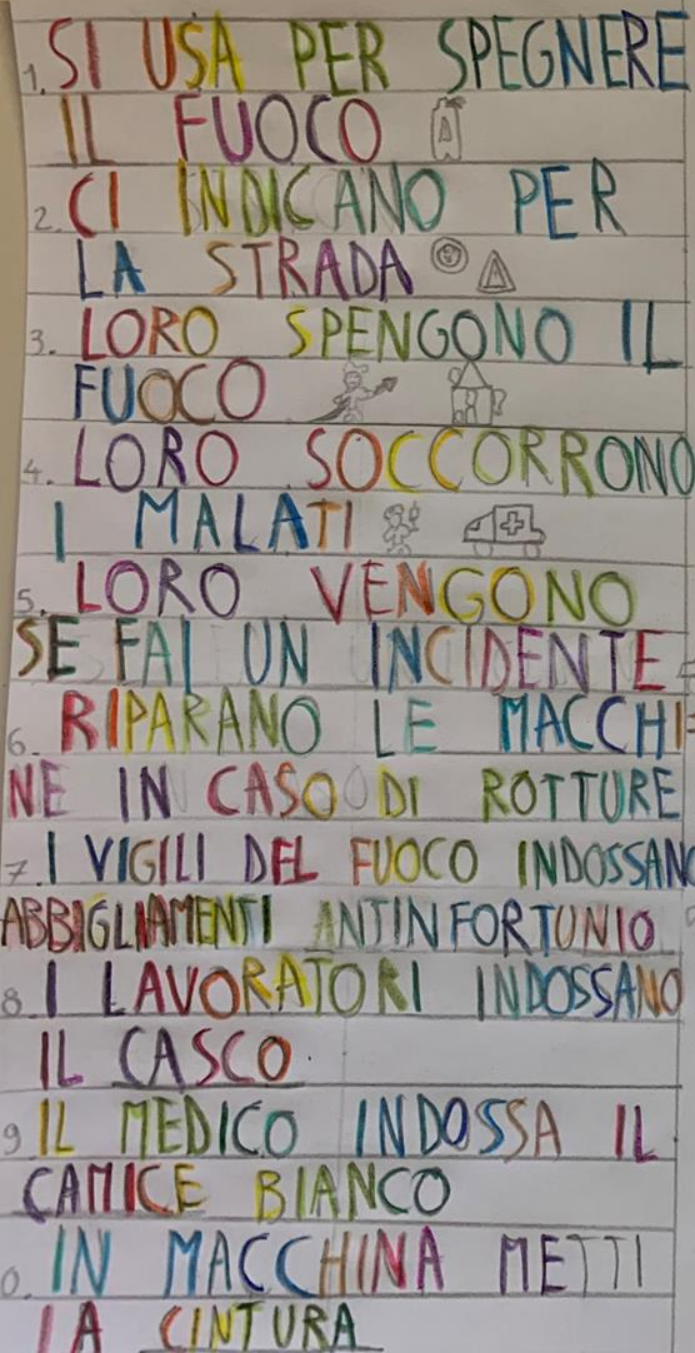 1. SI USA PER SPEGNERE
IL FUOCO
2. CI INDICANO PER
LA STRADA
3. LORO SPENGONO IL
FUOCO
4. LORO SOCCORRONO
I MALATI
5. LORO VENGONO
SE FAI UN INCIDENTE
6. RIPARANO LE MACCHI-
NE IN CASO DI ROTTURE
7. I VIGILI DEL FUOCO INDOSSANO
ABBIGLIAMENTI ANTINFORTUNIO
8. I LAVORATORI INDOSSANO
IL CASCO.
9 IL MEDICO INDOSSA IL
CAMICE BIANCO
0. IN MACCHINA METTI
LA CINTURA